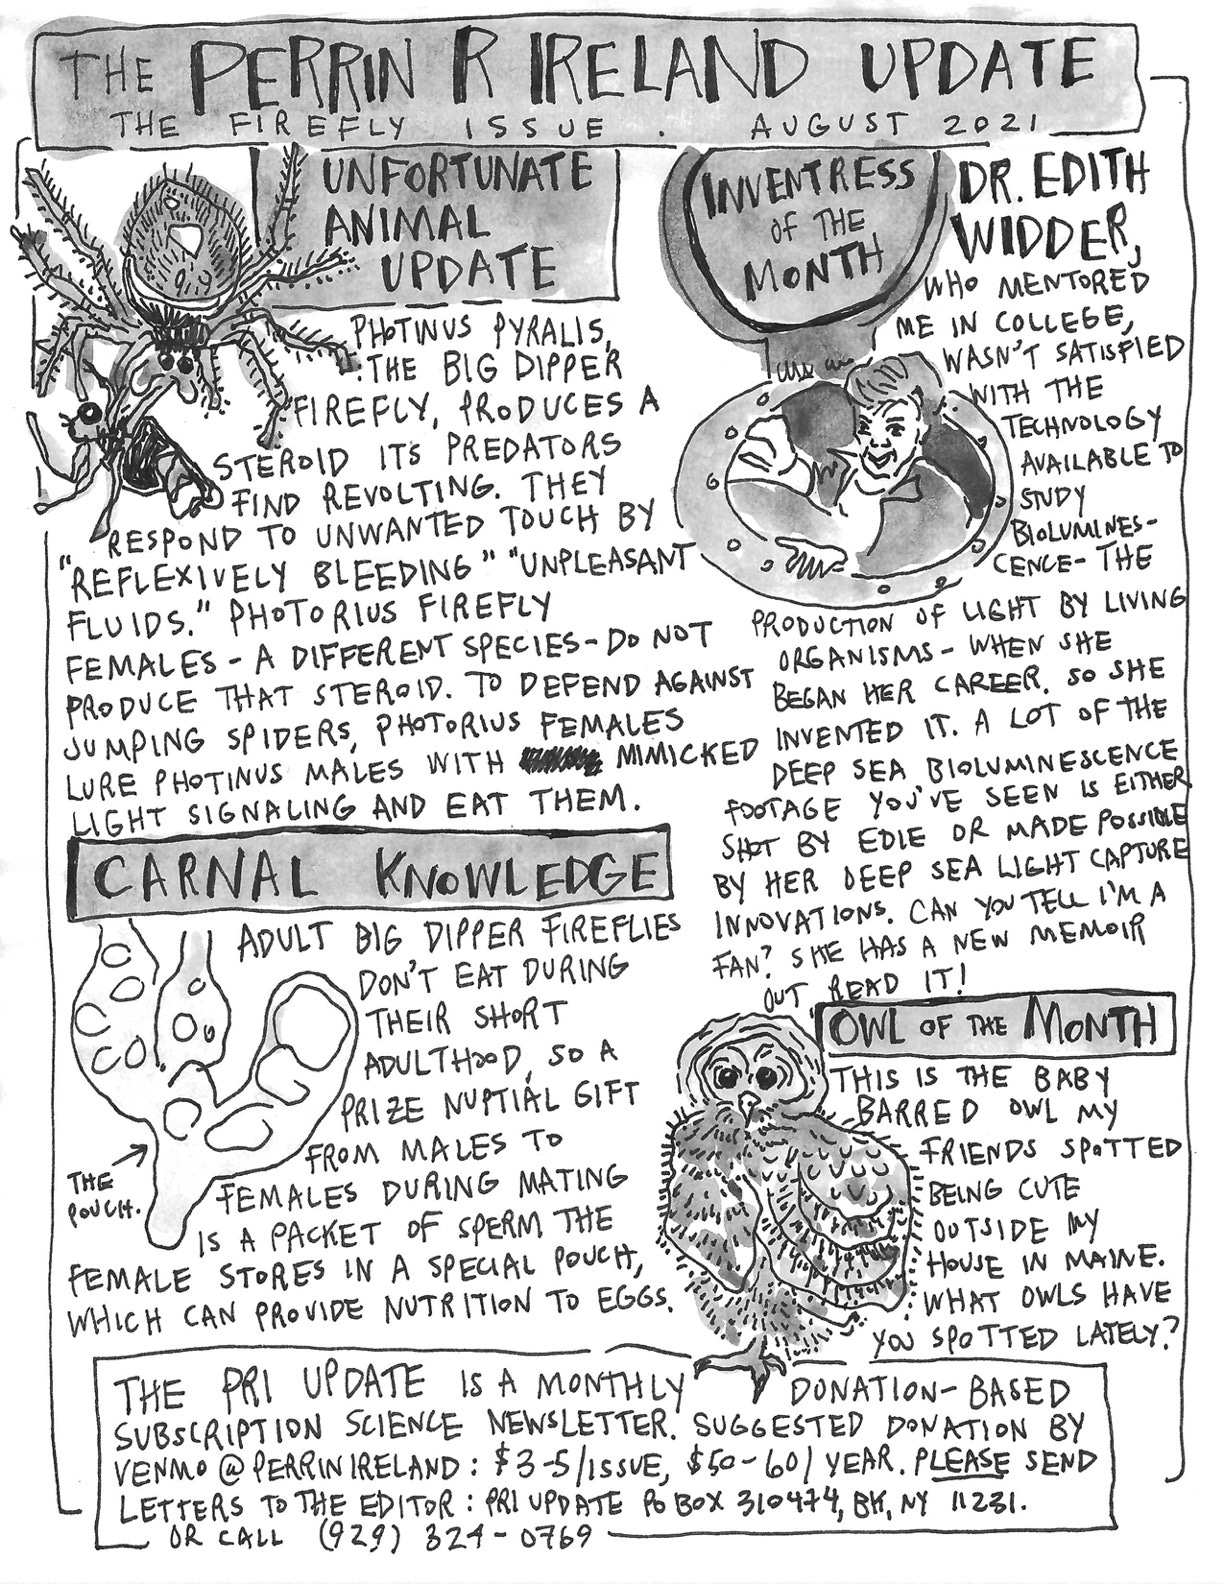 THE PERRIN R IRELAND UPDATE
THE FIREFLY ISSUE . AUGUST 2021
UNFORTUNATE
ANIMAL
UPDATE
PHOTINUS PYRALIS,
THE BIG DIPPER
FIREFLY, PRODUCES A
STEROID ITS PREDATORS
FIND REVOLTING. THEY
RESPOND TO UNWANTED TOUCH BY
"REFLEXIVELY BLEEDING" "UNPLEASANT
FLUIDS." PHOTORIUS FIREFLY
FEMALES - A DIFFERENT SPECIES - DO NOT
PRODUCE THAT STEROID. TO DEFEND AGAINST
JUMPING SPIDERS, PHOTORIUS FEMALES
LURE PHOTINUS MALES WITH MIMICKED
LIGHT SIGNALING AND EAT THEM.
CARNAL KNOWLEDGE
ADULT BIG DIPPER FIREFLIES
DON'T EAT DURING
THEIR SHORT
ADULTHOOD, SO A
PRIZE NUPTIAL GIFT
FROM MALES TO
FEMALES DURING MATING
IS A PACKET OF SPERM THE
FEMALE STORES IN A SPECIAL POUCH,
WHICH CAN PROVIDE NUTRITION TO EGGS.
THE
POUCH.
INVENTRESS
OF THE
MONTH
DR. EDITH
WIDDER,
WHO MENTORED
ME IN COLLEGE,
WASN'T SATISFIED
WITH THE
TECHNOLOGY
AVAILABLE TO
STUDY
BIOLUMINES-
CENCE - THE
PRODUCTION OF LIGHT BY LIVING
ORGANISMS - WHEN SHE
BEGAN HER CAREER. SO SHE
INVENTED IT. A LOT OF THE
DEEP SEA BIOLUMINESCENCE
FOOTAGE YOU'VE SEEN IS EITHER
SHOT BY EDIE OR MADE POSSIBLE
BY HER DEEP SEA LIGHT CAPTURE
INNOVATIONS. CAN YOU TELL I'M A
FAN? SHE HAS A NEW MEMOIR
OUT READ IT!
OWL OF THE MONTH
THIS IS THE BABY
BARRED OWL MY
FRIENDS SPOTTED
BEING CUTE
OUTSIDE MY
HOUSE IN MAINE.
WHAT OWLS HAVE
YOU SPOTTED LATELY?
THE PRI UPDATE IS A MONTHLY DONATION-BASED
SUBSCRIPTION SCIENCE NEWSLETTER. SUGGESTED DONATION BY
VENMO @PERRINIRELAND: $3-5/ISSUE, $50-60/YEAR. PLEASE SEND
LETTERS TO THE EDITOR: PRI UPDATE PO BOX 310474, BK, NY 11231.
OR CALL (929) 324-0769